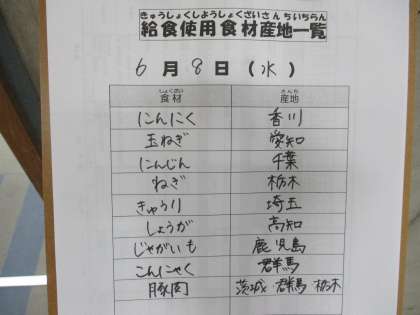 きゅうしょくしようしょくざいさんちいちらん
給食使用食材産地一覧
6月8日(水)
しょくざい さんち
食材 産地
にんにく 香川
玉ねぎ 愛知
にんじん 千葉
ねぎ 栃木
きゅうり 埼玉
しょうが 高知
じゃがいも 鹿児島
こんにゃく 群馬
豚肉 茨城・群馬・栃木